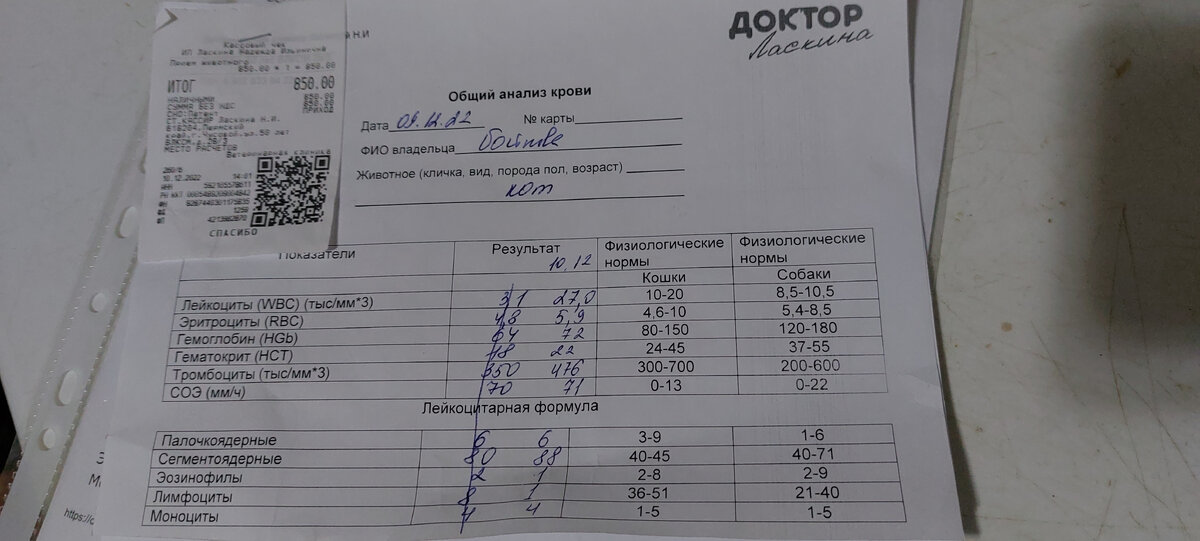 Кассовый чек
ИП Ласкина Надежда Ильинична
Прием животного
850.00 * 1 = 850.00
ИТОГ 850.00
НАЛИЧНЫМИ 850.00
СУММА БЕЗ НДС 850.00
СНО:Патент ПРИХОД
СТ.КАССИР Ласкина Н.И.
618204,Пермский
край,г.Чусовой,ул.50 лет
ВЛКСМ,д.
МЕСТО РАСЧЕТОВ
Ветеринарная клиника
10.12.2022 14:01
ИНН
РН ККТ
СПАСИБО
Н.И
ДОКТОР
Ласкина
Общий анализ крови
Дата 09.12.22 № карты
ФИО владельца
Животное (кличка, вид, порода пол, возраст)
кот
Показатели Результат 10.12 Физиологические нормы Физиологические нормы
Кошки Собаки
Лейкоциты (WBC) (тыс/мм*3) 31 27,0 10-20 8,5-10,5
Эритроциты (RBC) 4,8 5,9 4,6-10 5,4-8,5
Гемоглобин (HGb) 64 72 80-150 120-180
Гематокрит (HCT) 18 22 24-45 37-55
Тромбоциты (тыс/мм*3) 350 476 300-700 200-600
СОЭ (мм/ч) 70 71 0-13 0-22
Лейкоцитарная формула
Палочкоядерные 6 6 3-9 1-6
Сегментоядерные 80 88 40-45 40-71
Эозинофилы 2 1 2-8 2-9
Лимфоциты 8 1 36-51 21-40
Моноциты 4 4 1-5 1-5
https://c